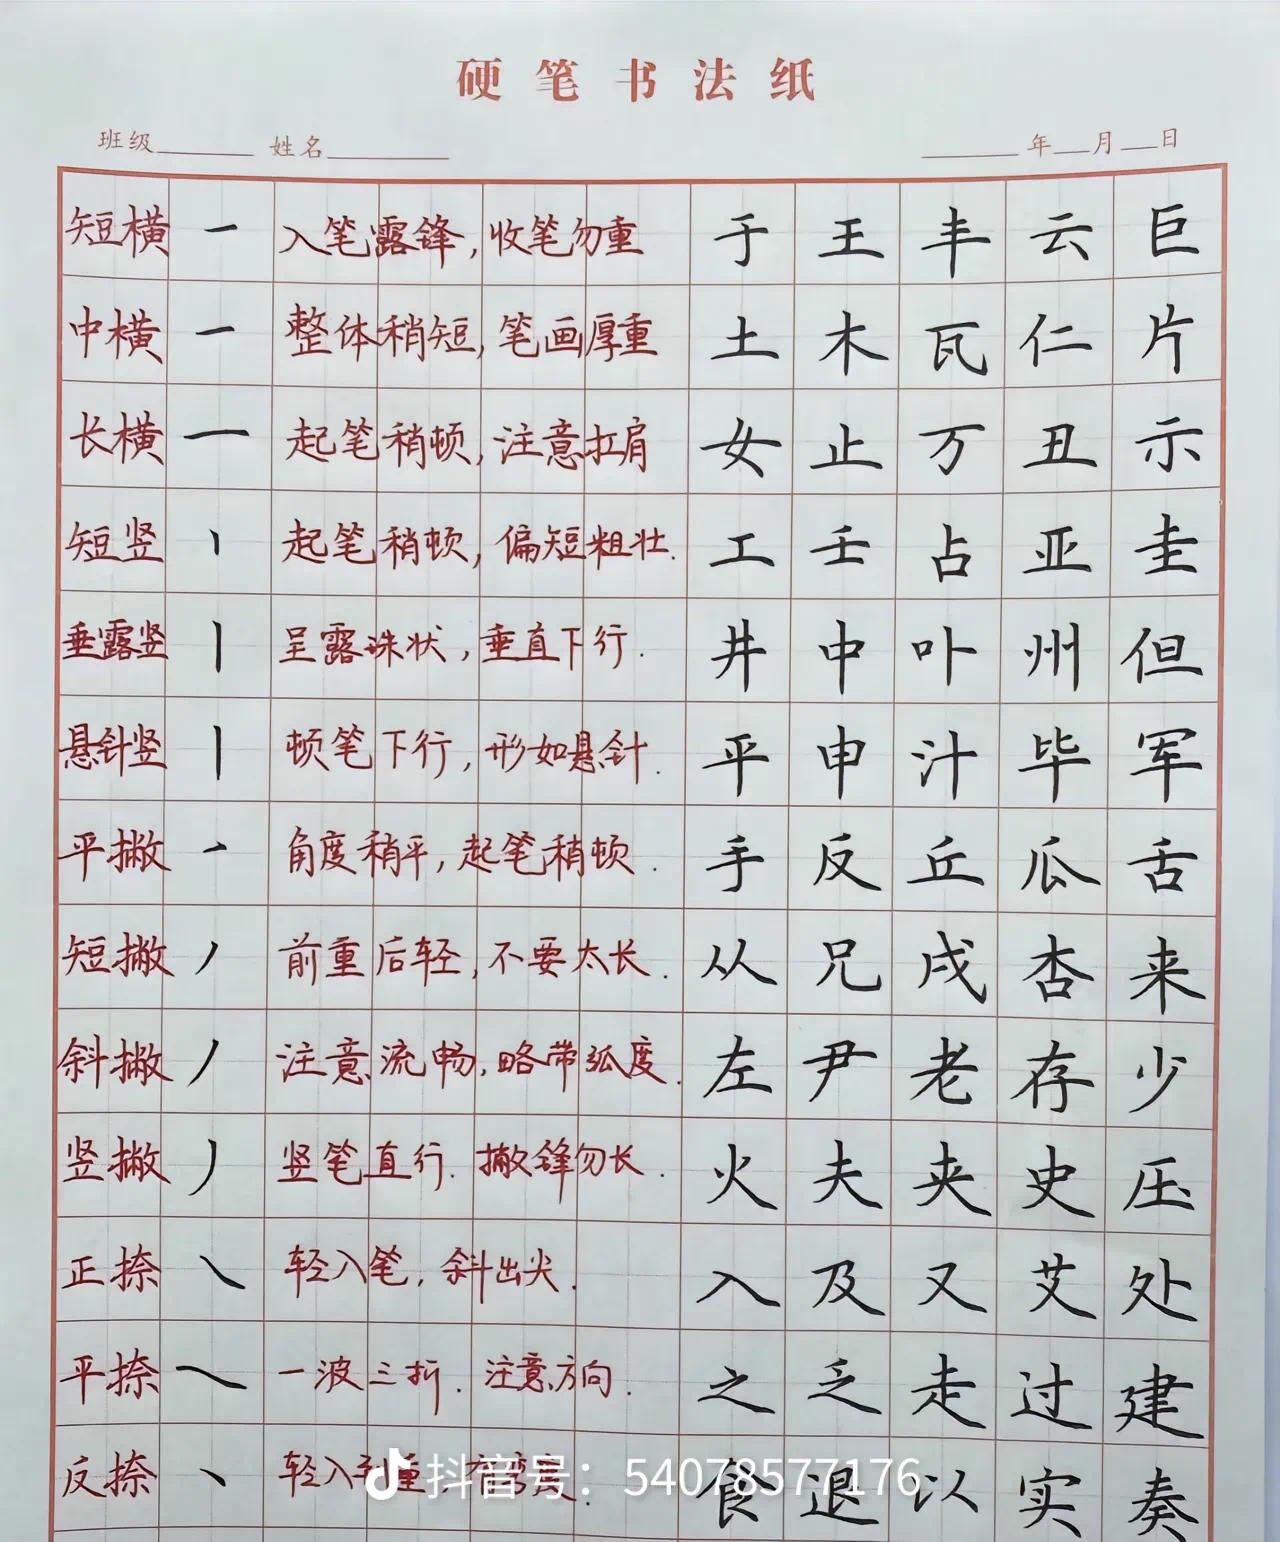 硬笔书法纸
班级 姓名 年 月 日
短横 一 入笔露锋,收笔勿重 于 王 丰 云 巨
中横 一 整体稍短,笔画厚重 土 木 瓦 仁 片
长横 一 起笔稍顿,注意扛肩 女 止 万 丑 示
短竖 丨 起笔稍顿,偏短粗壮. 工 壬 占 亚 圭
垂露竖 丨 呈露珠状,垂直下行. 井 中 叶 州 但
悬针竖 丨 顿笔下行,形如悬针. 平 申 汁 毕 军
平撇 ㇒ 角度稍平,起笔稍顿. 手 反 丘 瓜 舌
短撇 丿 前重后轻,不要太长. 从 兄 戌 杏 来
斜撇 丿 注意流畅,略带弧度. 左 尹 老 存 少
竖撇 丿 竖笔直行.撇锋勿长. 火 夫 夹 史 压
正捺 ㇏ 轻入笔,斜出尖. 入 及 又 艾 处
平捺 ㇏ 一波三折.注意方向. 之 乏 走 过 建
反捺 ㇔ 轻入 重 弯度. 食 退 以 实 奏
抖音号：54078577176